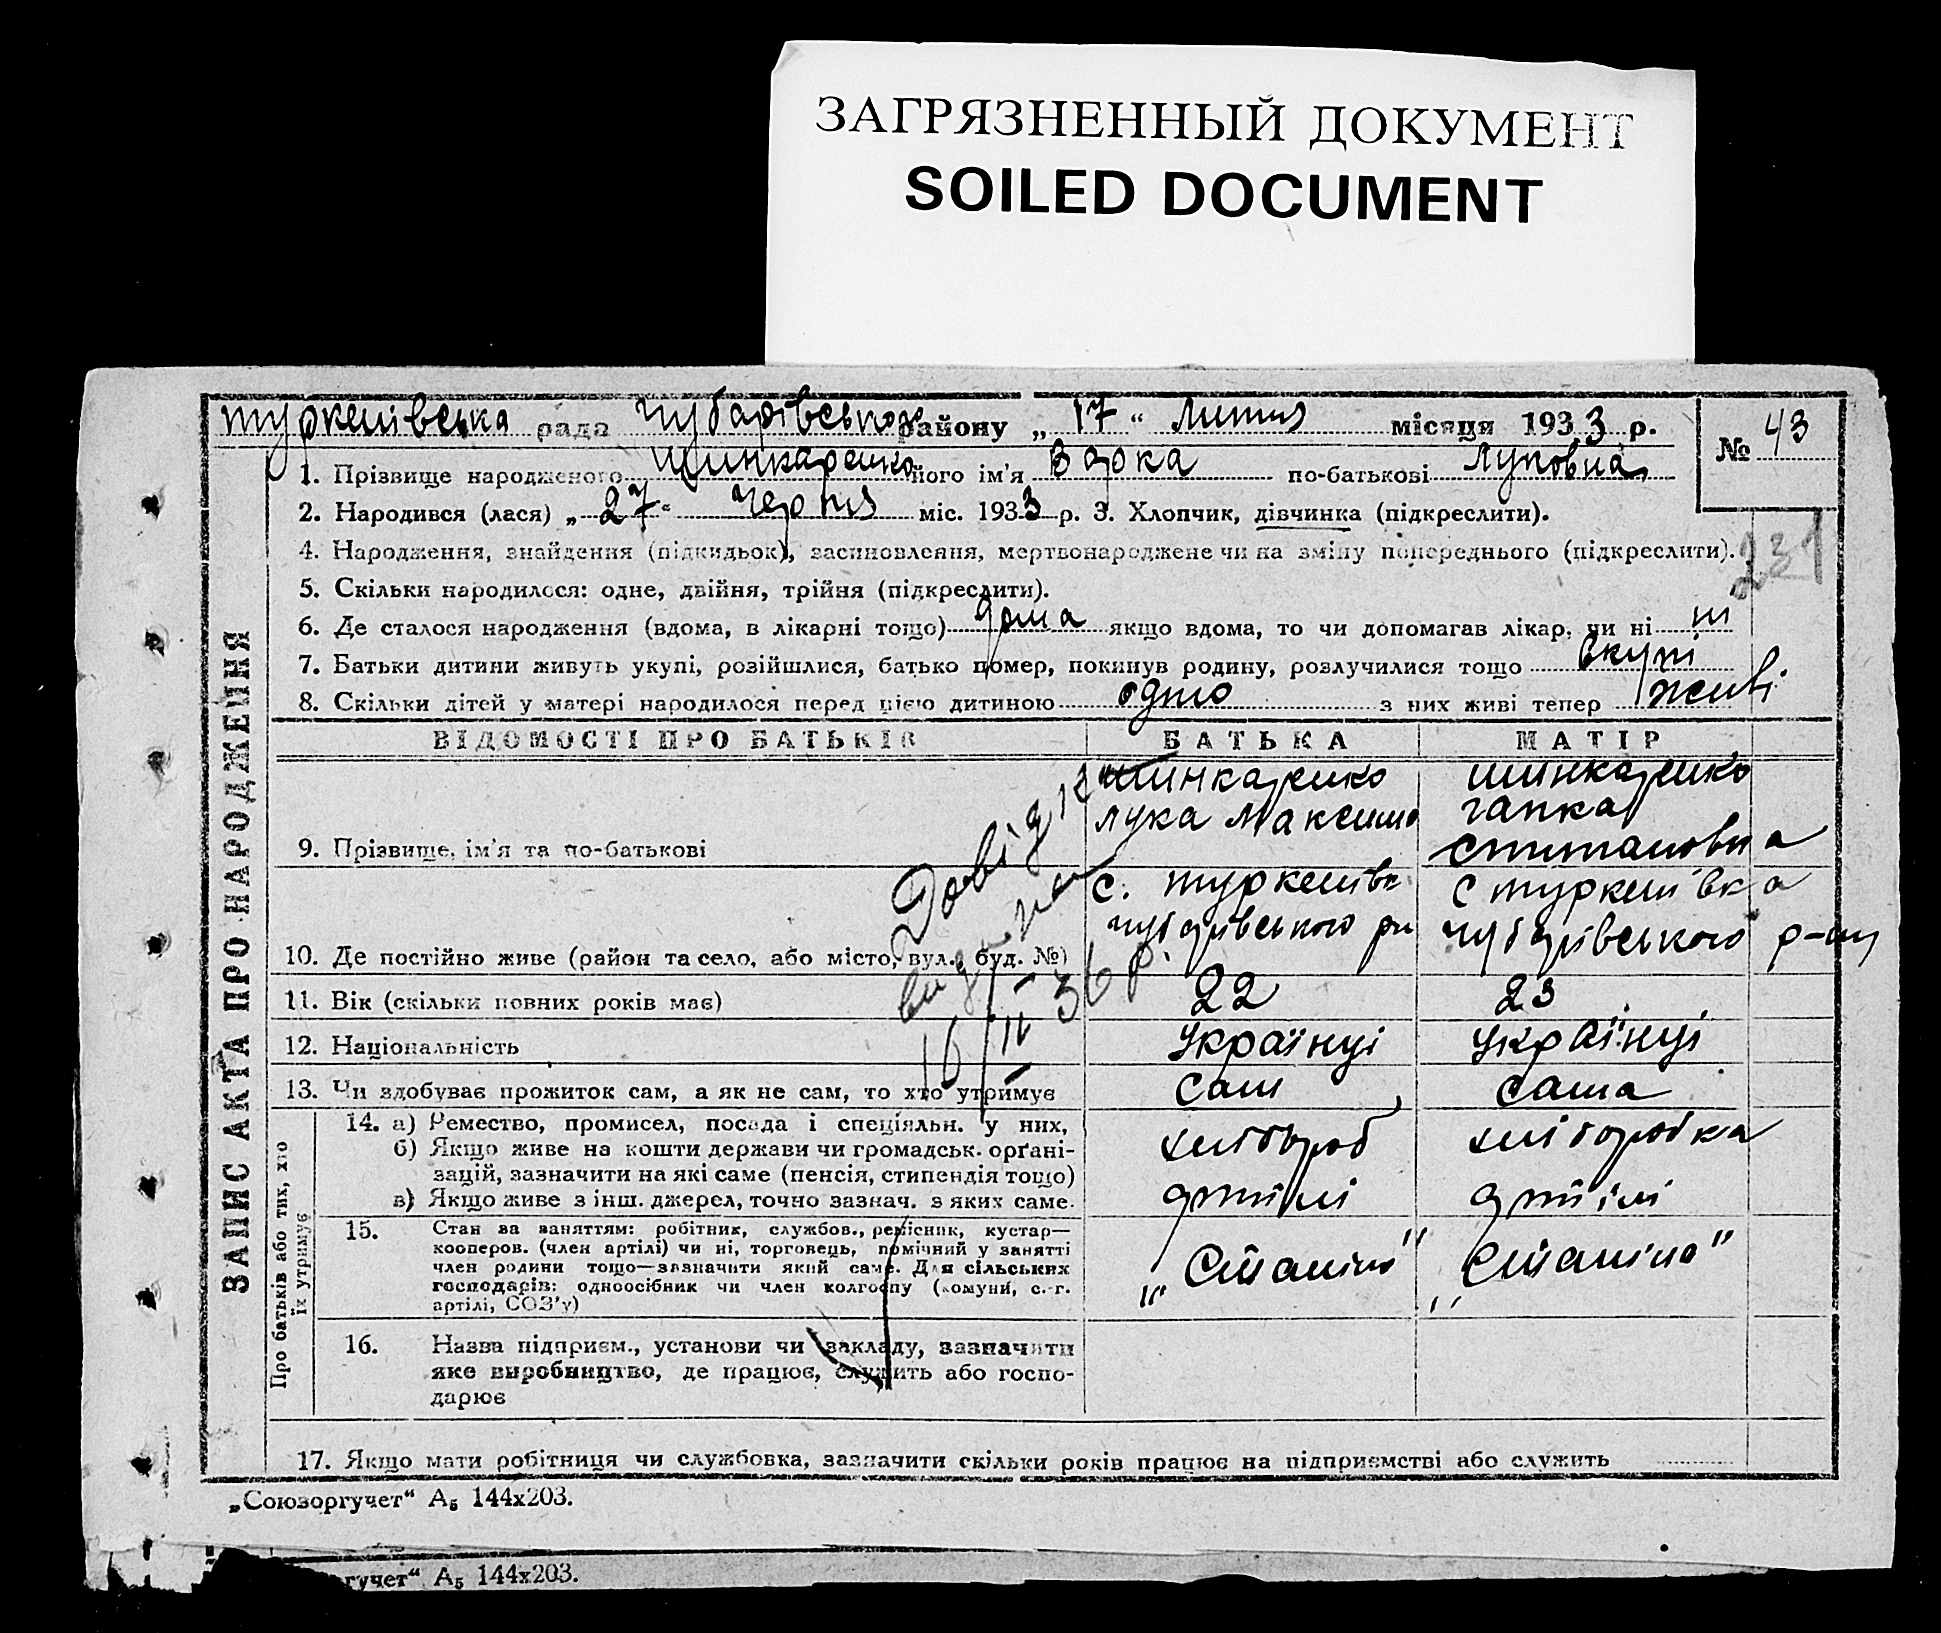 ЗАГРЯЗНЕННЫЙ ДОКУМЕНТ
SOILED DOCUMENT
туркенівська рада Чубарівського району „ 17 “ Липня місяця 1933 р.
№ 43
1. Прізвище народженого Шинкаренко його ім'я Варка по-батькові Луковна
2. Народився (лася) „ 27 “ Червня міс. 1933 р. 3. Хлопчик, дівчинка (підкреслити).
4. Народження, знайдення (підкидьок), засиновлення, мертвонароджене чи на зміну попереднього (підкреслити).
231
5. Скільки народилося: одне, двійня, трійня (підкреслити).
6. Де сталося народження (вдома, в лікарні тощо) дома якщо вдома, то чи допомагав лікар, чи ні ні
7. Батьки дитини живуть укупі, розійшлися, батько помер, покинув родину, розлучилися тощо вкупі
8. Скільки дітей у матері народилося перед цією дитиною одно з них живі тепер живі
ЗАПИС АКТА ПРО НАРОДЖЕННЯ
ВІДОМОСТІ ПРО БАТЬКІВ БАТЬКА МАТІР
9. Прізвище, ім'я та по-батькові
Шинкаренко
лука Максимо
шинкаренко
гапка
степановна
10. Де постійно живе (район та село, або місто, вул., буд. №)
с. туркенівк
чубарівського рн
с туркенівка
чубарівського р-ну
Довідк
видан
16/II 36 р.
11. Вік (скільки повних років має) 22 23
12. Національність Українці Українці
13. Чи здобуває прожиток сам, а як не сам, то хто утримує сам сама
Про батьків або тих, хто їх утримує
14. а) Ремество, промисел, посада і спеціяльн. у них,
б) Якщо живе на кошти держави чи громадськ. орґані-
зацій, зазначити на які саме (пенсія, стипендія тощо)
в) Якщо живе з інш. джерел, точно зазнач. з яких саме.
хлібороб
хліборобка
артілі
артілі
15. Стан за заняттям: робітник, службов., ремісник, кустар—
кооперов. (член артілі) чи ні, торговець, помічний у занятті
член родини тощо—зазначити який саме. Для сільських
господарів: одноосібник чи член колгоспу (комуни, с.-г.
артілі, СОЗ'у)
„Сталіна“
„Сталіна“
16. Назва підприєм., установи чи закладу, зазначити
яке виробництво, де працює, служить або госпо-
дарює
17. Якщо мати робітниця чи службовка, зазначити скільки років працює на підприємстві або служить
„Союзоргучет“ А₅ 144х203.
гучет“ А₅ 144х203.